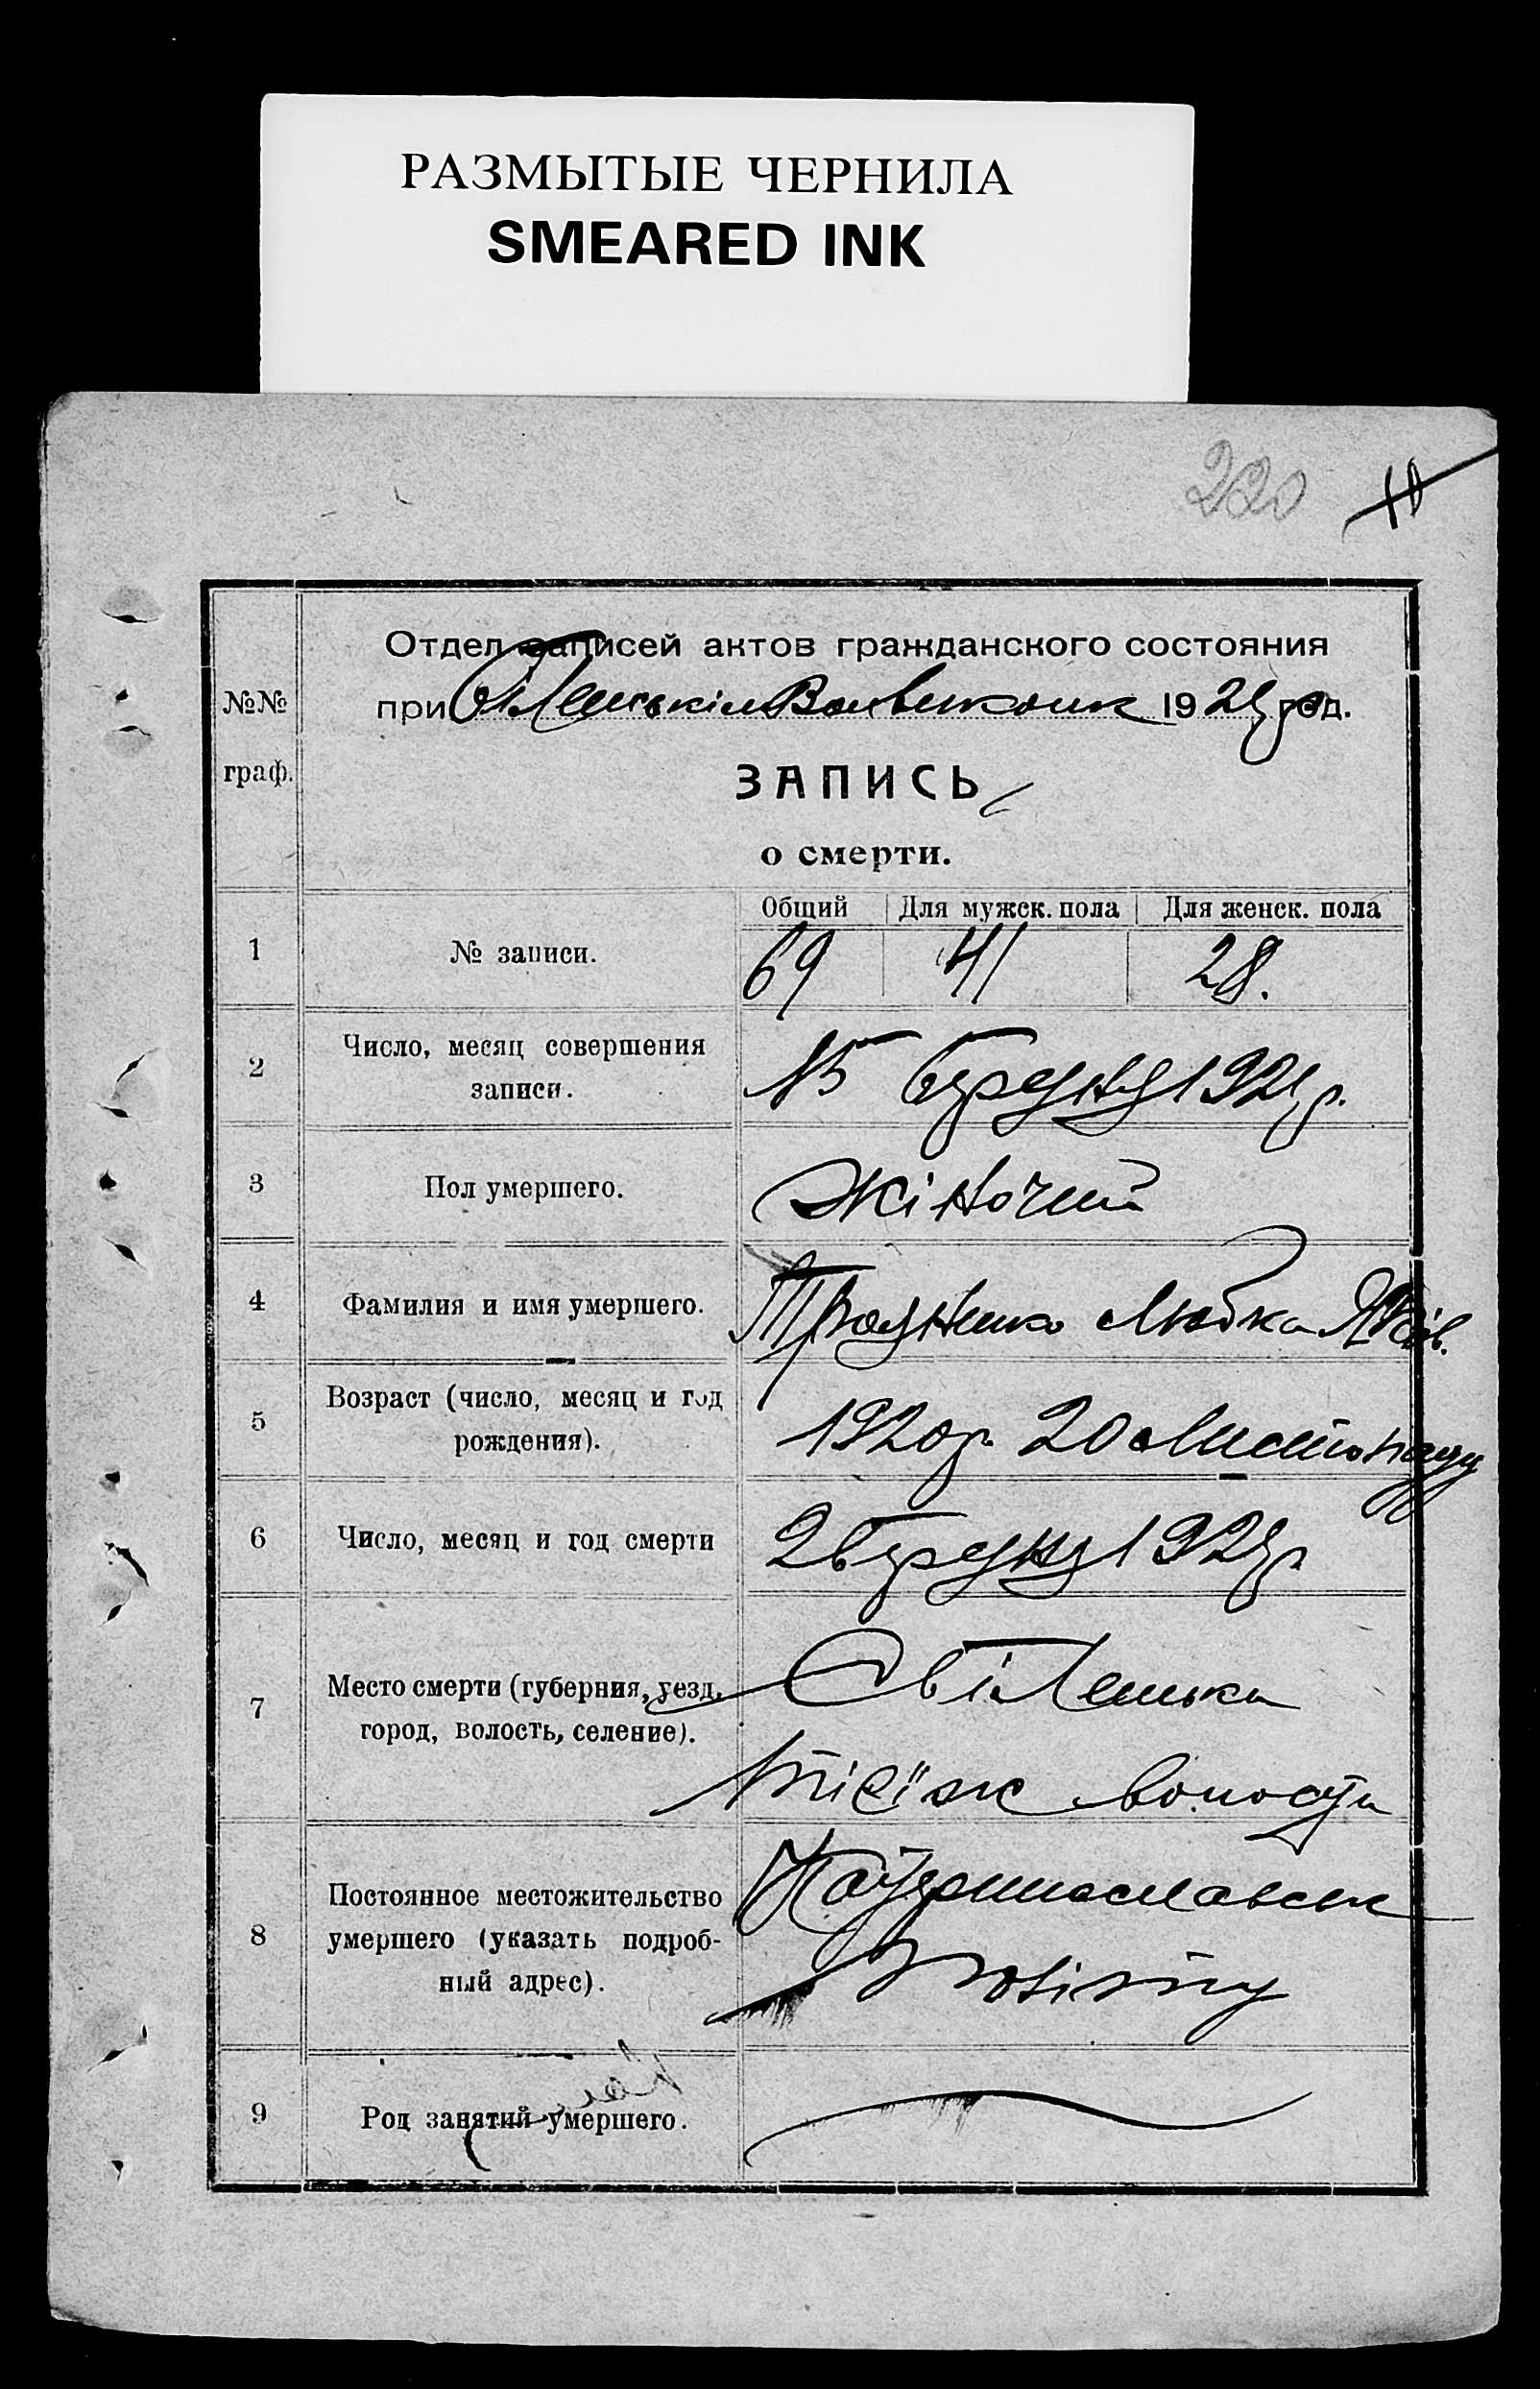 РАЗМЫТЫЕ ЧЕРНИЛА
SMEARED INK
220 10
Отдел записей актов гражданского состояния
№№
при 192 год.
граф.
ЗАПИСЬ
о смерти.
Общий Для мужск. пола Для женск. пола
1 № записи. 69 41 28.
2 Число, месяц совершения
записи.
15 192 р.
3 Пол умершего. жіночий
4 Фамилия и имя умершего. Любка Яків.
5 Возраст (число, месяц и год
рождения).
1920 р. 20 Листопаду
6 Число, месяц и год смерти 2 192 р.
7 Место смерти (губерния, уезд,
город, волость, селение).
волости
8 Постоянное местожительство
умершего (указать подроб-
ный адрес).
повіту
9 Род занятий умершего.